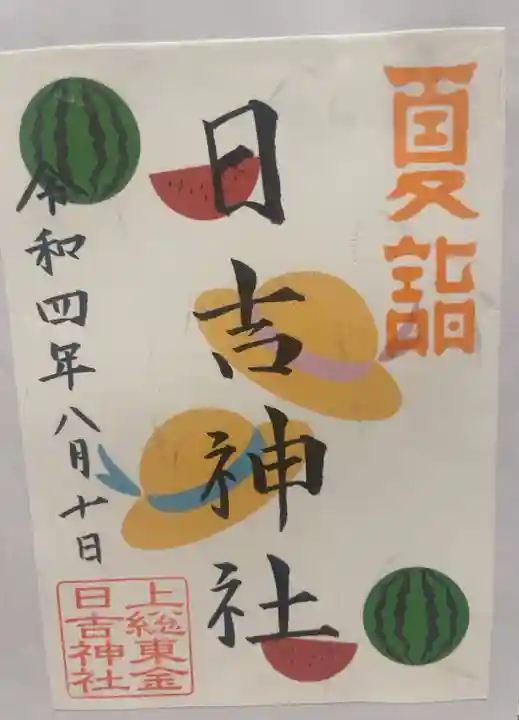 夏詣
日吉神社
令和四年八月十日
上総東金
日吉神社